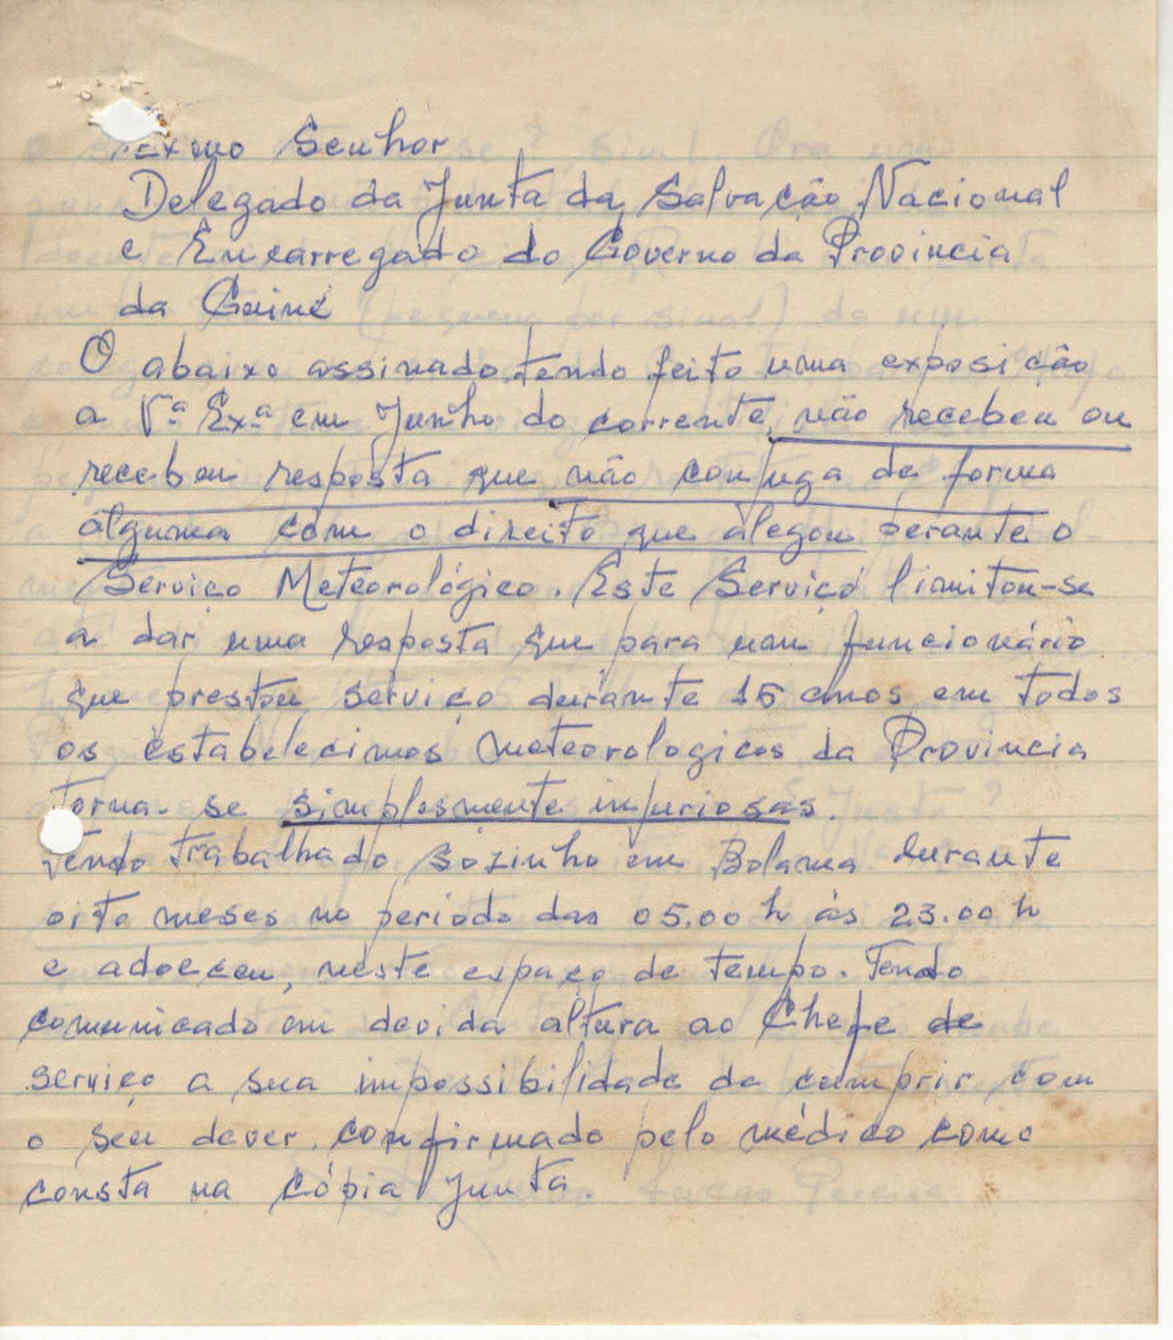 Exmo Senhor
Delegado da Junta da Salvação Nacional
e Encarregado do Governo da Provincia
da Guiné
O abaixo assinado, tendo feito uma exposição
a V.ª Ex.ª em Junho do corrente, não recebeu ou
recebeu resposta que não conjuga de forma
alguma com o direito que alegou perante o
Serviço Meteorológico. Este Serviço limitou-se
a dar uma resposta que para um funcionário
que prestou serviço durante 15 anos em todos
os estabelecimos meteorologicos da Provincia
torna-se simplesmente injuriosas.
Tendo trabalhado sozinho em Bolama durante
oito meses no periodo das 05.00 h às 23.00 h
e adoeceu, neste espaço de tempo. Tendo
comunicado em devida altura ao Chefe de
serviço a sua impossibilidade de cumprir com
o seu dever, confirmado pelo médico como
consta na cópia junta.